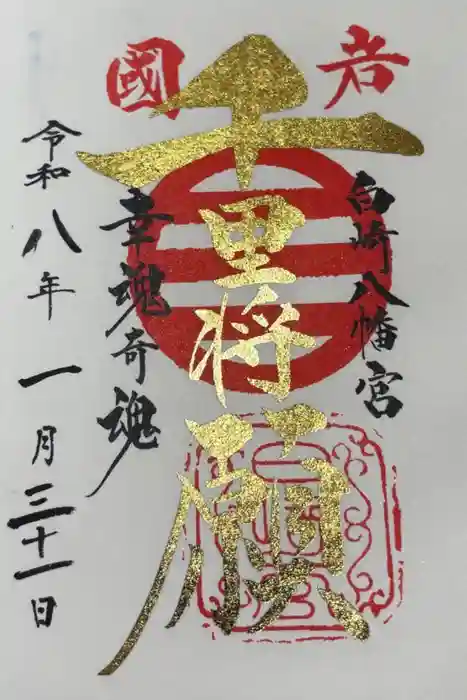 岩國
白崎八幡宮
千里将願
幸魂奇魂
令和八年一月三十一日